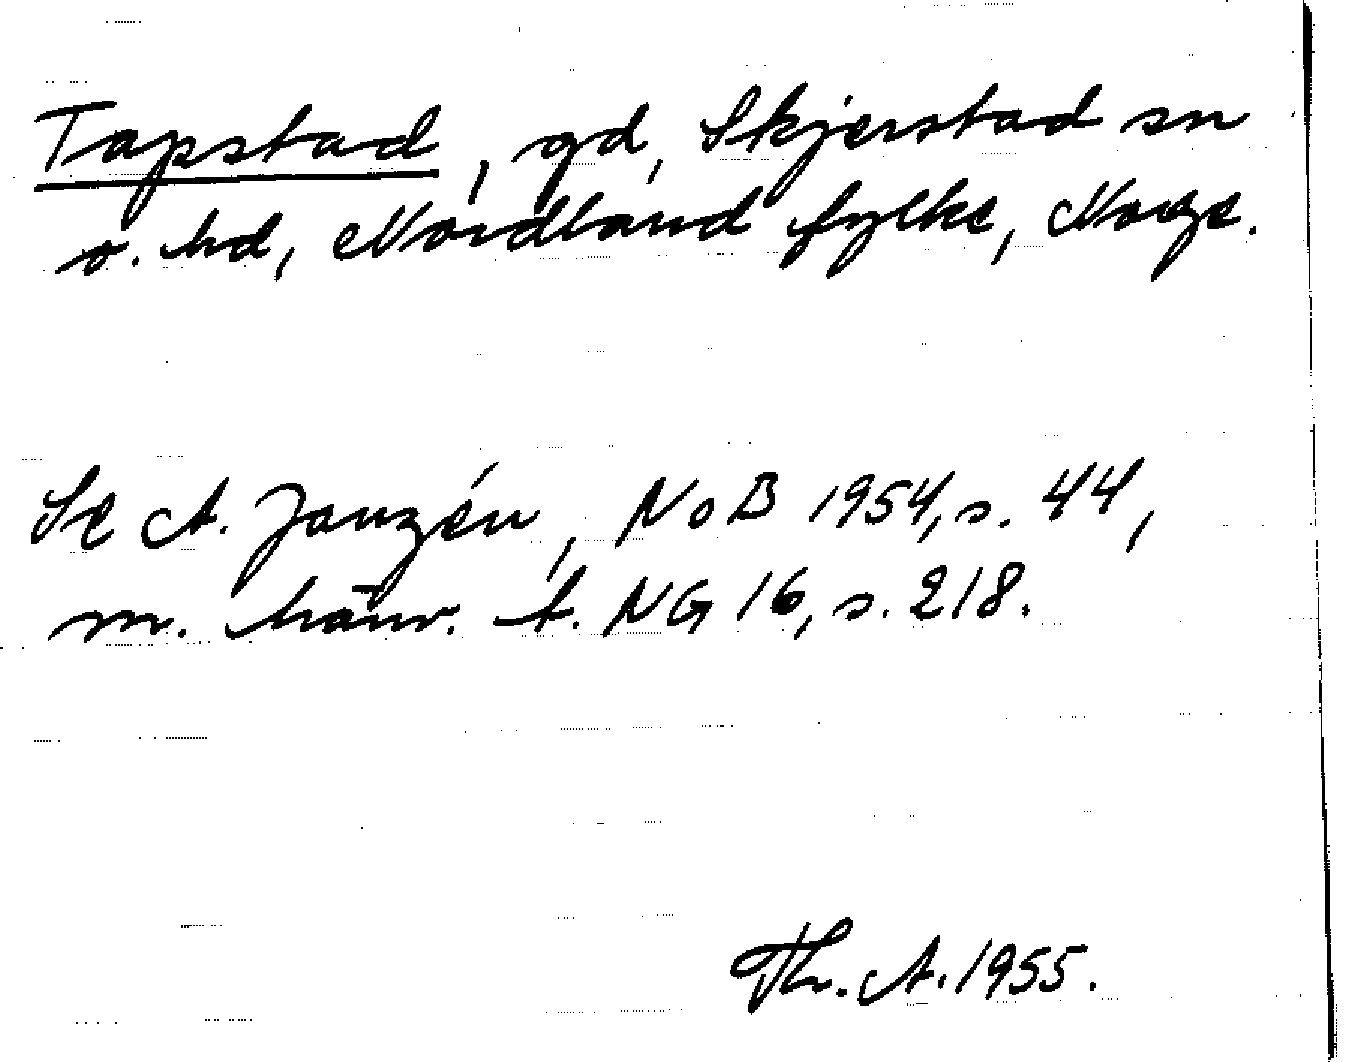 Tapstad, gd, Skjerstad sn
o. hd, Nordland fylke, Norge.
Se A. Janzén, NoB 1954, s. 44,
m. hänv. t. NG 16, s. 218.
Th. A. 1955.